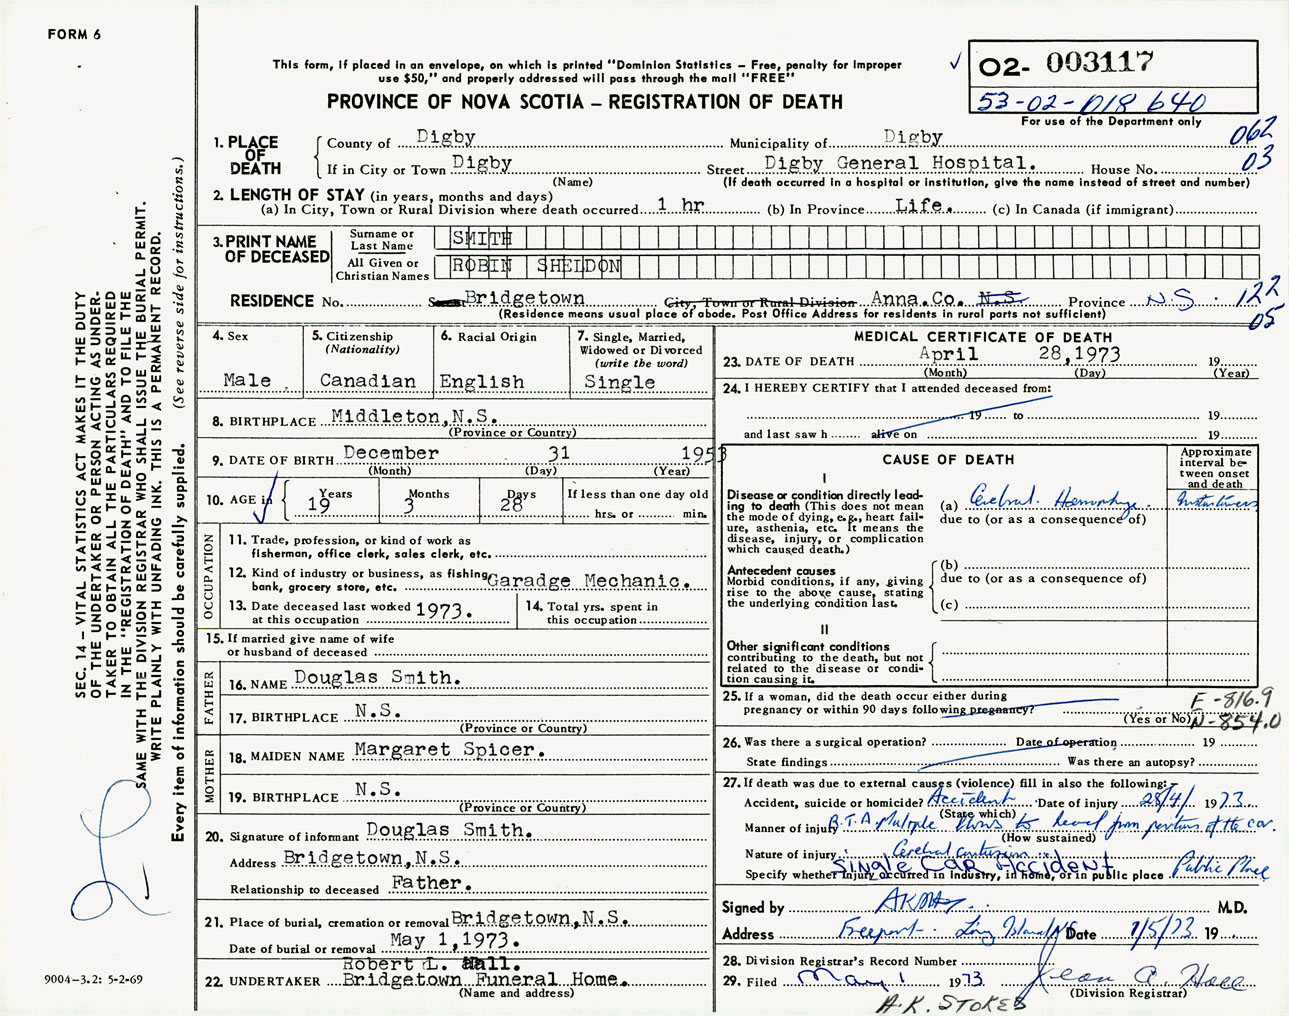 FORM 6
This form, if placed in an envelope, on which is printed "Dominion Statistics – Free, penalty for improper
use $50," and properly addressed will pass through the mail "FREE"
PROVINCE OF NOVA SCOTIA – REGISTRATION OF DEATH
02- 003117
53-02-018640
For use of the Department only
062
03
1. PLACE OF DEATH
County of Digby Municipality of Digby
If in City or Town Digby Street Digby General Hospital. House No.
(Name) (If death occurred in a hospital or institution, give the name instead of street and number)
2. LENGTH OF STAY (in years, months and days)
(a) In City, Town or Rural Division where death occurred 1 hr (b) In Province Life. (c) In Canada (if immigrant)
3. PRINT NAME OF DECEASED
Surname or Last Name SMITH
All Given or Christian Names ROBIN SHELDON
RESIDENCE No. Bridgetown City, Town or Rural Division Anna.Co. N.S Province N.S. 122
05
(Residence means usual place of abode. Post Office Address for residents in rural parts not sufficient)
4. Sex
Male
5. Citizenship
(Nationality)
Canadian
6. Racial Origin
English
7. Single, Married,
Widowed or Divorced
(write the word)
Single
8. BIRTHPLACE Middleton,N.S.
(Province or Country)
9. DATE OF BIRTH December 31 1953
(Month) (Day) (Year)
10. AGE in Years 19 Months 3 Days 28 If less than one day old
hrs. or min.
OCCUPATION
11. Trade, profession, or kind of work as
fisherman, office clerk, sales clerk, etc.
12. Kind of industry or business, as fishing,
bank, grocery store, etc. Garadge Mechanic.
13. Date deceased last worked
at this occupation 1973.
14. Total yrs. spent in
this occupation
15. If married give name of wife
or husband of deceased
FATHER
16. NAME Douglas Smith.
17. BIRTHPLACE N.S.
(Province or Country)
MOTHER
18. MAIDEN NAME Margaret Spicer.
19. BIRTHPLACE N.S.
(Province or Country)
20. Signature of informant Douglas Smith.
Address Bridgetown,N.S.
Relationship to deceased Father.
21. Place of burial, cremation or removal Bridgetown,N.S.
Date of burial or removal May 1,1973.
Robert L. Hall.
22. UNDERTAKER Bridgetown Funeral Home.
(Name and address)
MEDICAL CERTIFICATE OF DEATH
23. DATE OF DEATH April 28,1973 19
(Month) (Day) (Year)
24. I HEREBY CERTIFY that I attended deceased from:
19 to 19
and last saw h alive on 19
CAUSE OF DEATH
Approximate interval between onset and death
I
Disease or condition directly leading to death (This does not mean the mode of dying, e.g., heart failure, asthenia, etc. It means the disease, injury, or complication which caused death.)
(a) Cerebral Hemorrhage
due to (or as a consequence of)
Antecedent causes
Morbid conditions, if any, giving rise to the above cause, stating the underlying condition last.
(b)
due to (or as a consequence of)
(c)
II
Other significant conditions
contributing to the death, but not related to the disease or condition causing it.
25. If a woman, did the death occur either during
pregnancy or within 90 days following pregnancy?
(Yes or No)
E-816.9
N-854.0
26. Was there a surgical operation? Date of operation 19
State findings Was there an autopsy?
27. If death was due to external causes (violence) fill in also the following:
Accident, suicide or homicide? Accident Date of injury 28/4/ 1973
(State which)
Manner of injury R.T.A. Multiple blows to head from portions of the car.
(How sustained)
Nature of injury Cerebral contusion
Single Car Accident
Specify whether injury occurred in industry, in home, or in public place Public Place
Signed by M.D.
Address Freeport Long Island NS Date 1/5/73 19
28. Division Registrar's Record Number
29. Filed May 1 1973 Jean A. Hall
(Division Registrar)
A.K. STOKES
9004–3.2: 5-2-69
SEC. 14 – VITAL STATISTICS ACT MAKES IT THE DUTY
OF THE UNDERTAKER OR PERSON ACTING AS UNDER-
TAKER TO OBTAIN ALL THE PARTICULARS REQUIRED
IN THE "REGISTRATION OF DEATH" AND TO FILE THE
SAME WITH THE DIVISION REGISTRAR WHO SHALL ISSUE THE BURIAL PERMIT.
WRITE PLAINLY WITH UNFADING INK. THIS IS A PERMANENT RECORD.
Every item of information should be carefully supplied. (See reverse side for instructions.)